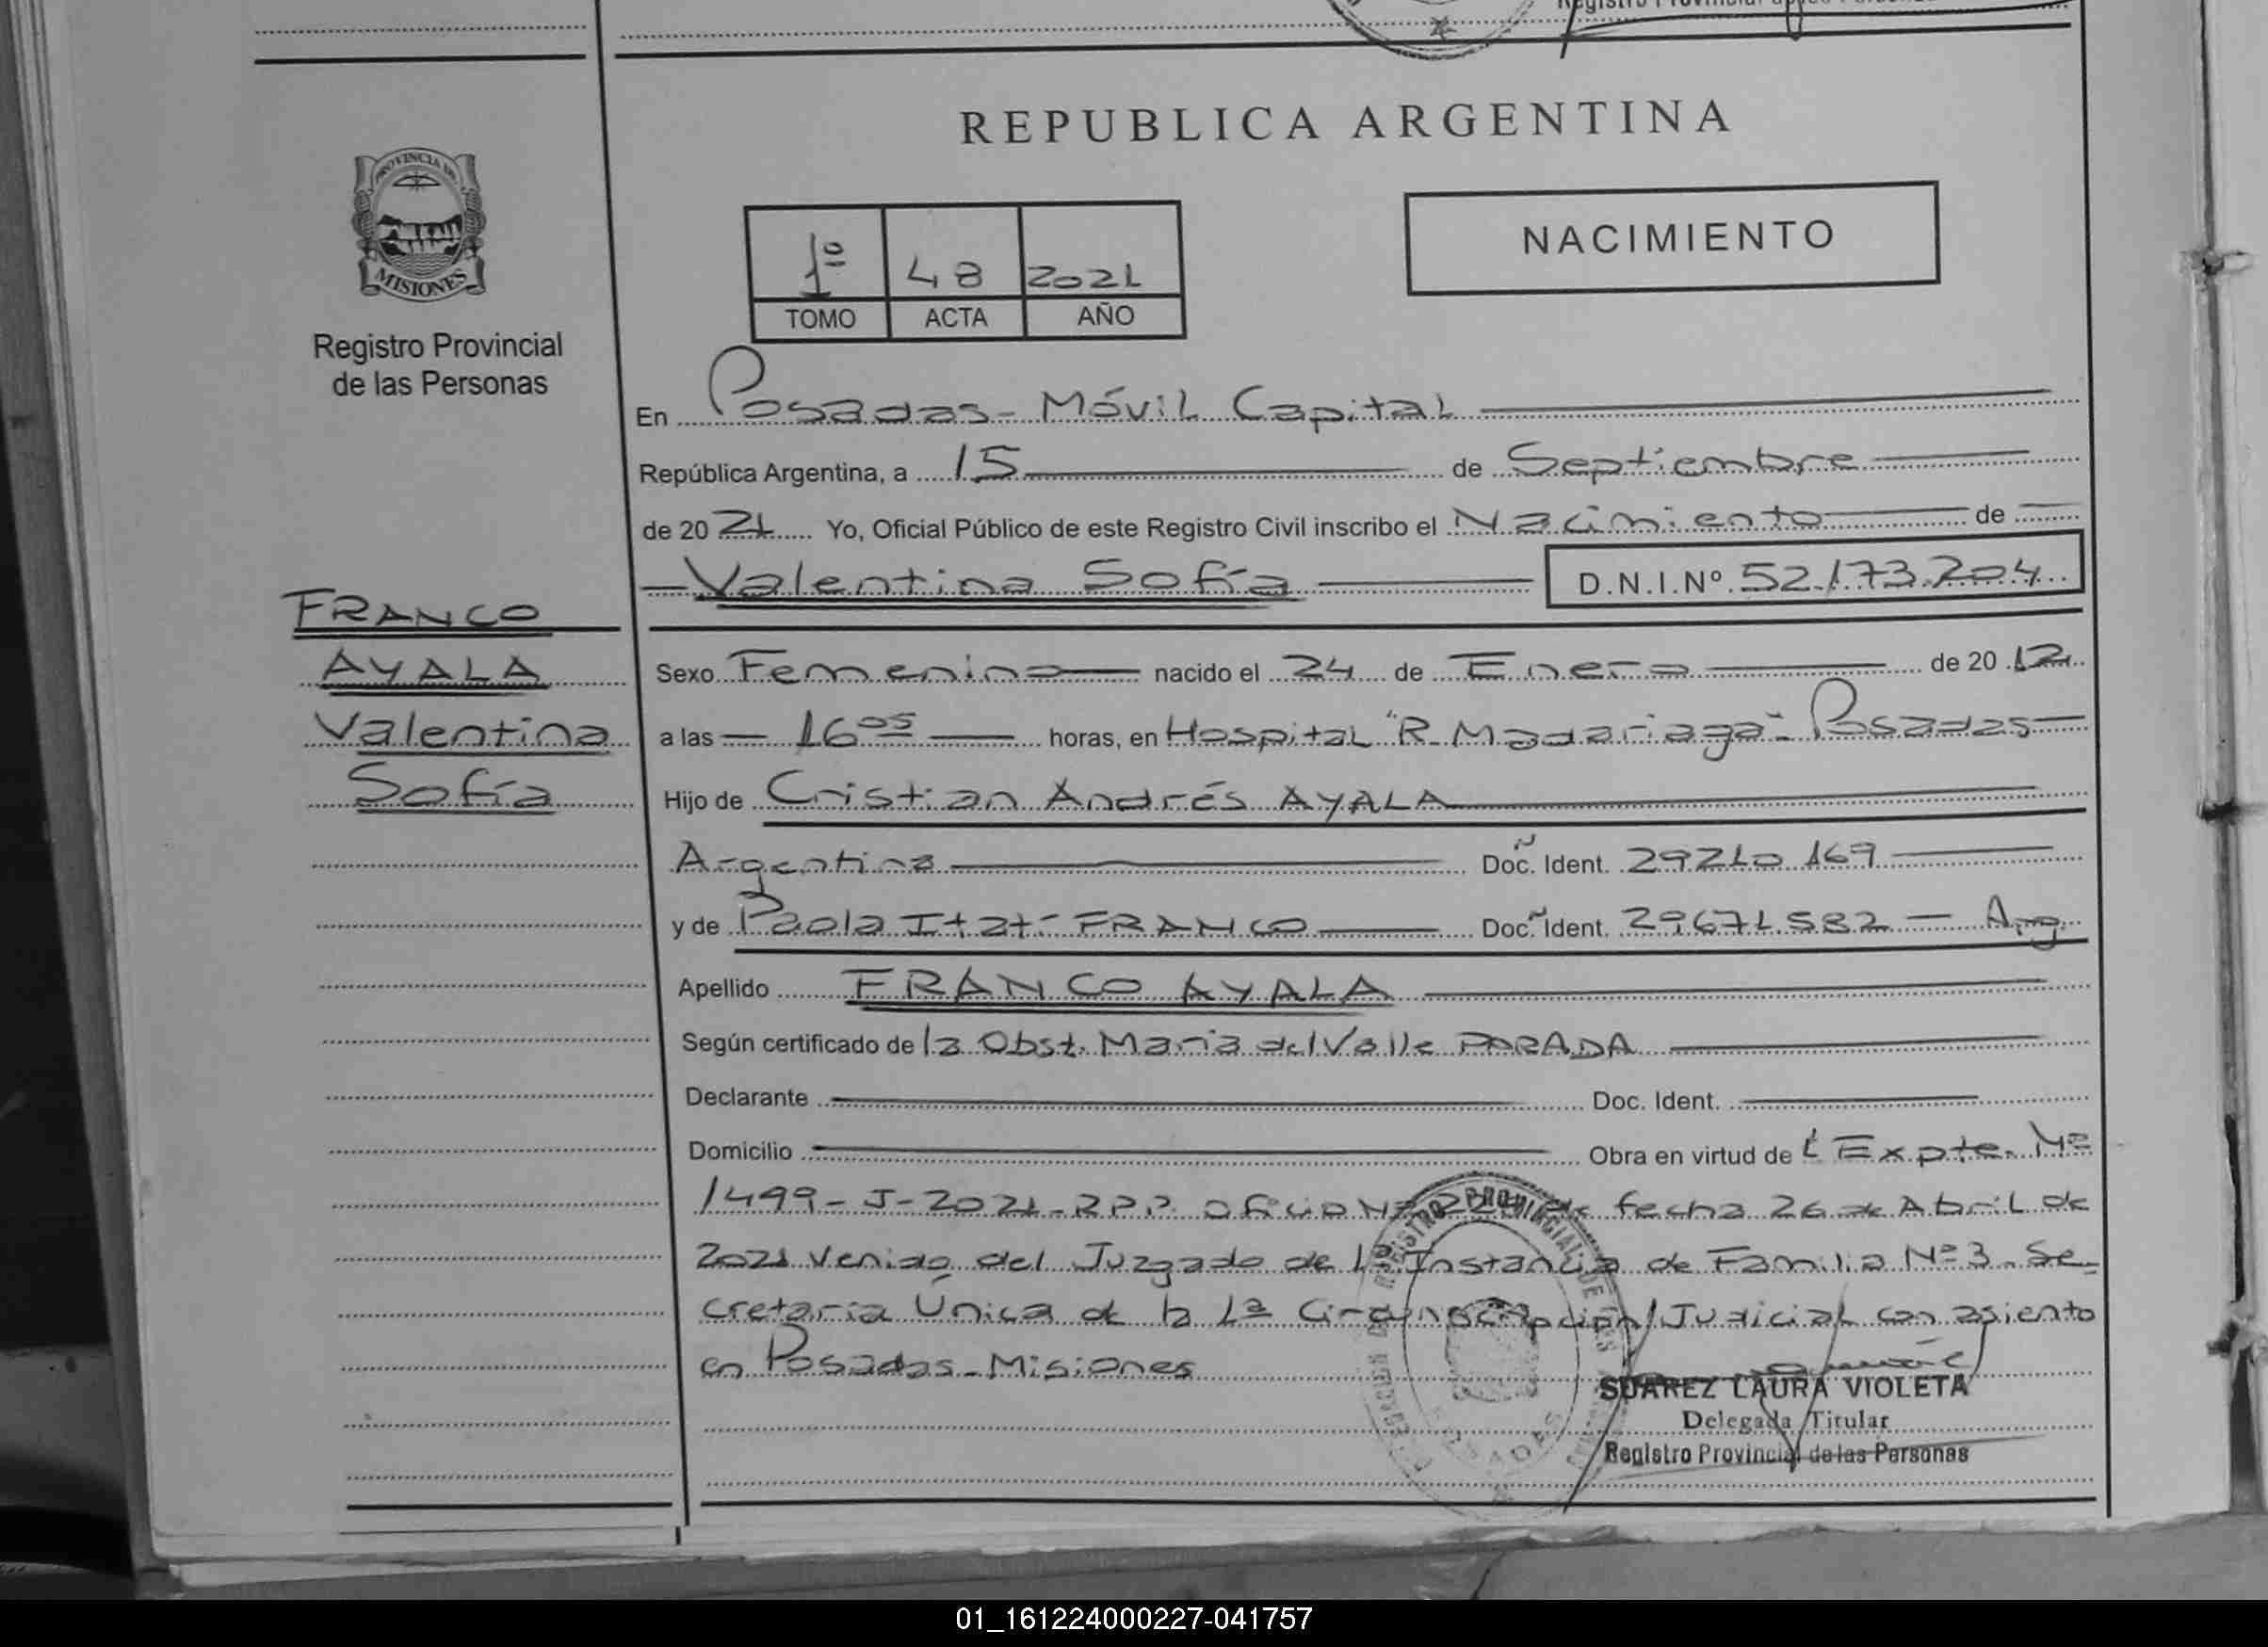 REPUBLICA ARGENTINA
PROVINCIA DE
MISIONES
Registro Provincial
de las Personas
NACIMIENTO
1º 48 2021
TOMO ACTA AÑO
En Posadas - Móvil Capital
República Argentina, a 15 de Septiembre
de 20 21 Yo, Oficial Público de este Registro Civil inscribo el Nacimiento de
Valentina Sofía D.N.I.Nº. 52.173.204
FRANCO
AYALA
Valentina
Sofía
Sexo Femenino nacido el 24 de Enero de 20 12
a las 16 05 horas, en Hospital "R. Madariaga" - Posadas
Hijo de Cristian Andrés AYALA
Argentina Doc. Ident. 29210169
y de Paola Itatí FRANCO Doc. Ident. 29671582 - Arg
Apellido FRANCO AYALA
Según certificado de la Obst. María del Valle PARADA
Declarante Doc. Ident.
Domicilio Obra en virtud de Expte. Nº
1499-J-2021-RPP Oficio Nº de fecha 26 de Abril de
2021 venido del Juzgado de 1ª Instancia de Familia Nº 3 - Se-
cretaría Única de la 1ª Circunscripción Judicial con asiento
en Posadas - Misiones
SUAREZ LAURA VIOLETA
Delegada Titular
Registro Provincial de las Personas
01_161224000227-041757